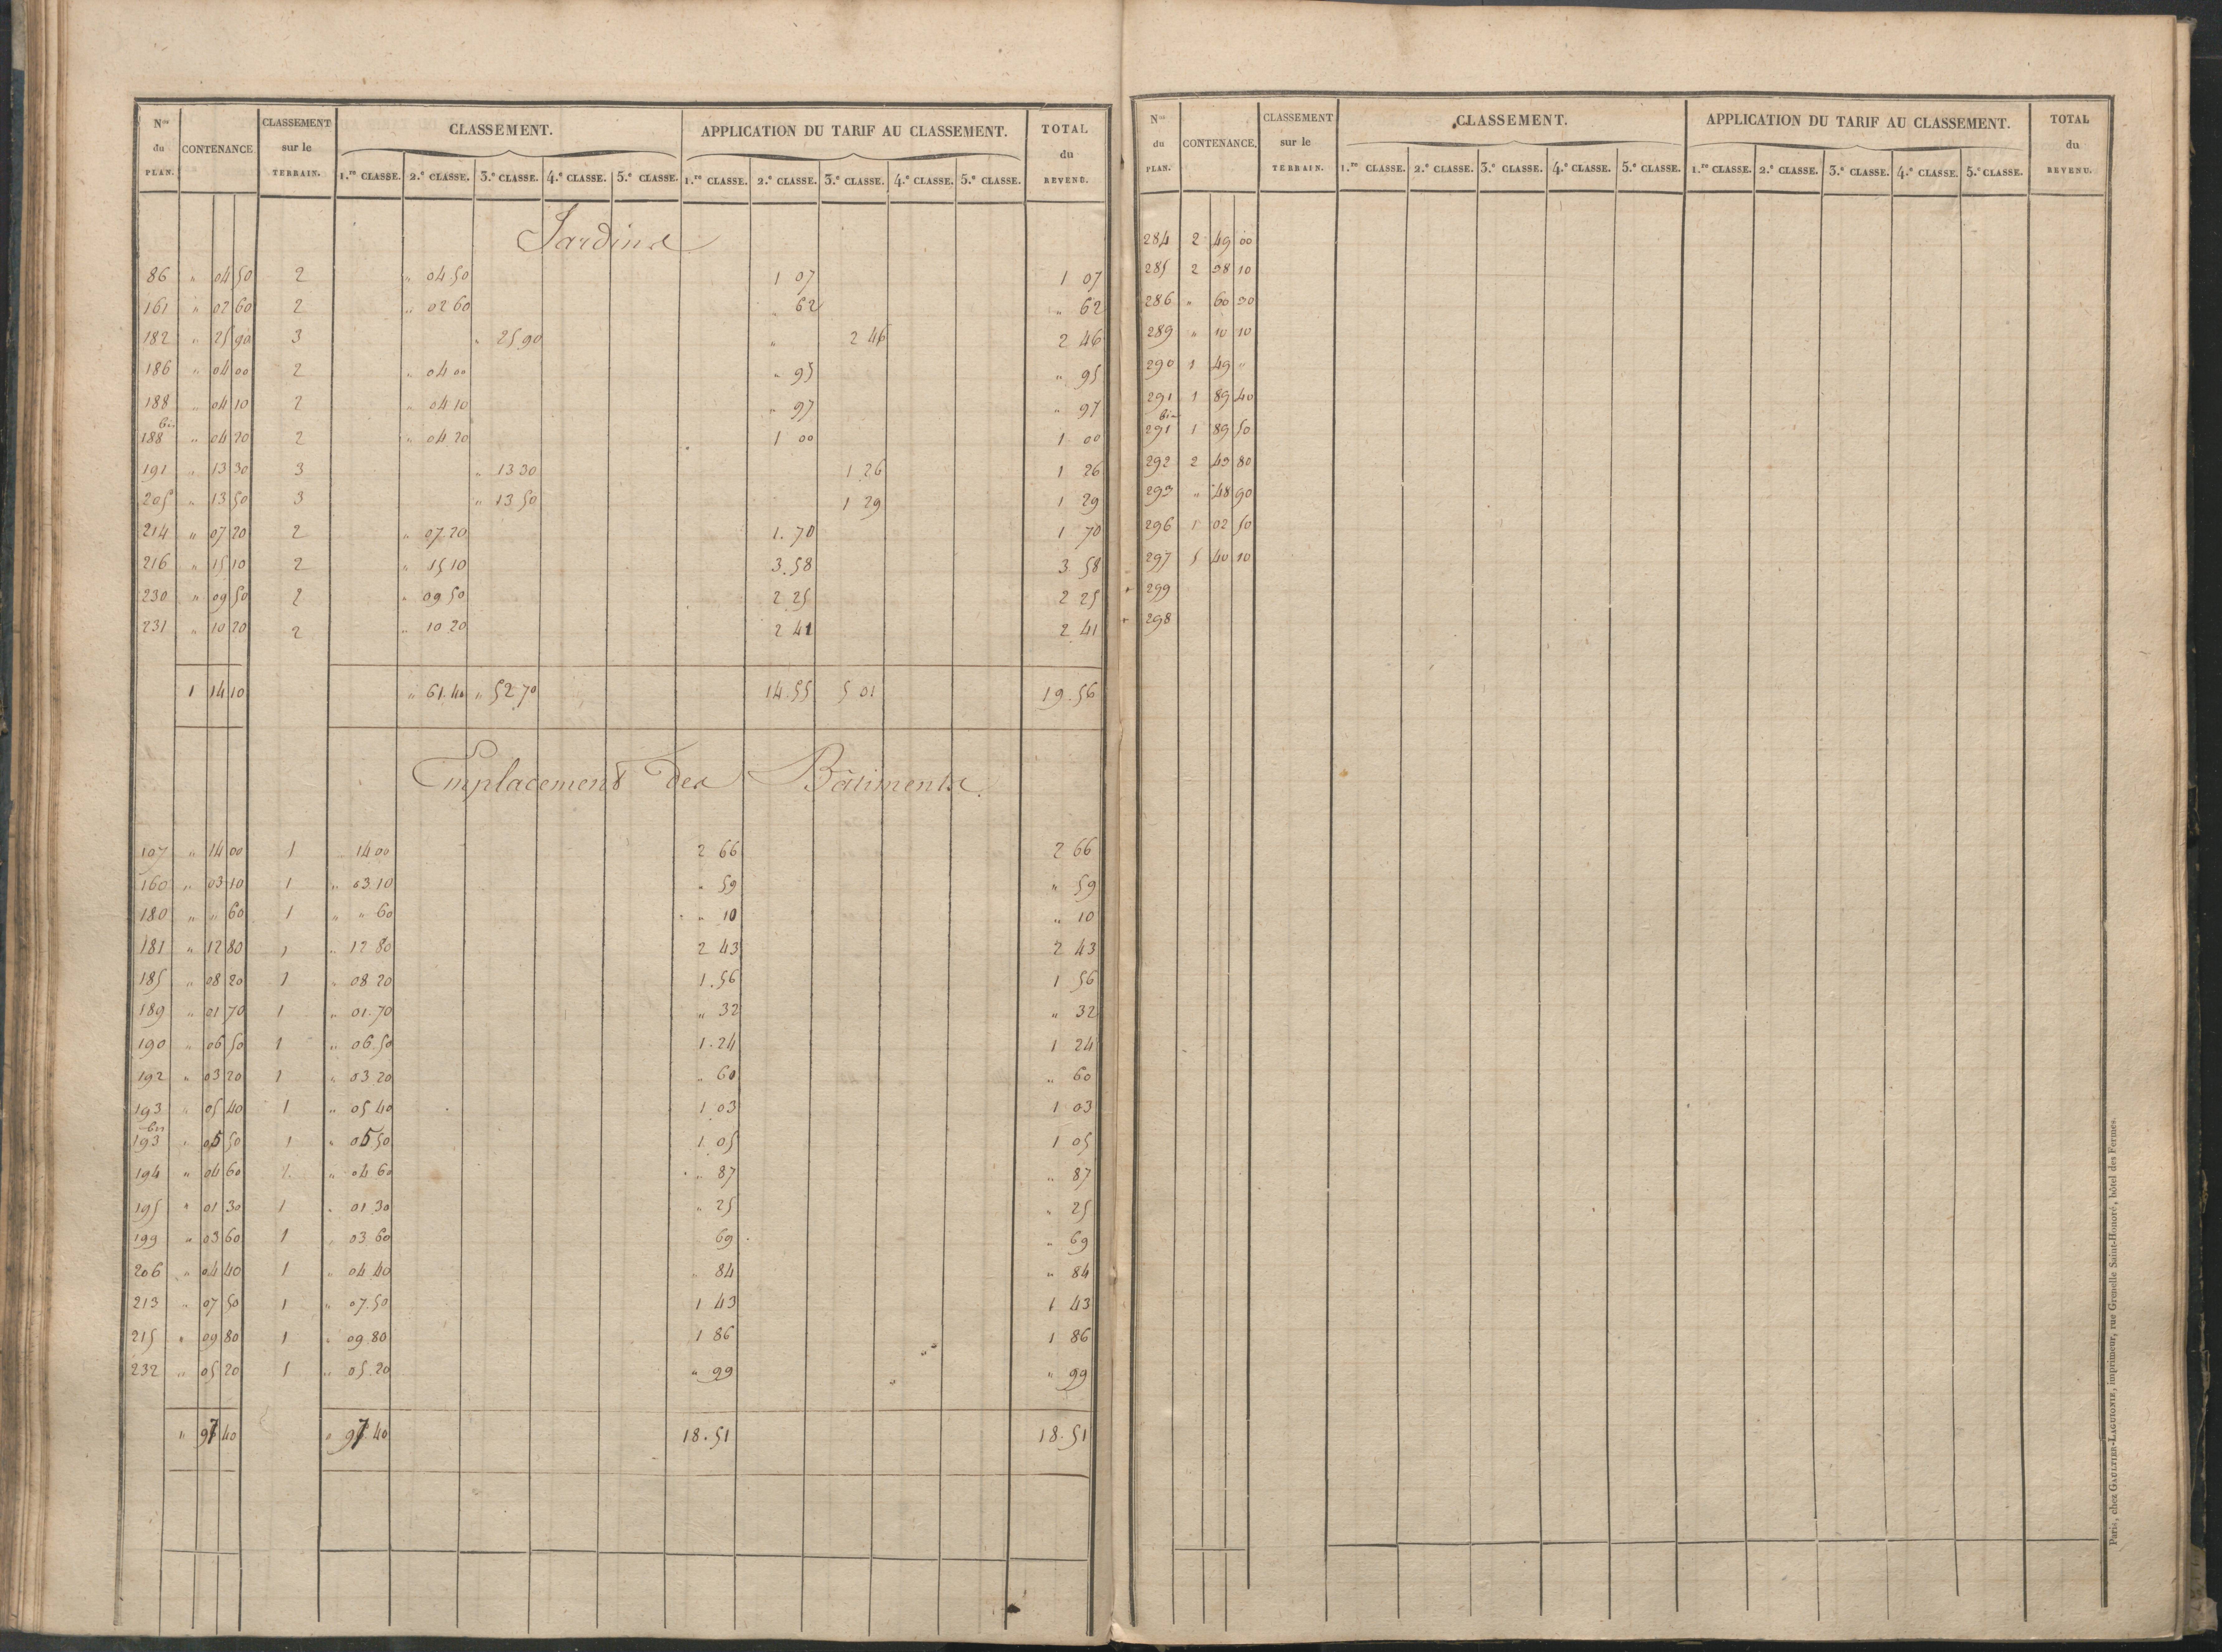 N.os du PLAN. CONTENANCE CLASSEMENT sur le TERRAIN. CLASSEMENT. APPLICATION DU TARIF AU CLASSEMENT. TOTAL du REVENU.
1.re CLASSE. 2.e CLASSE. 3.e CLASSE. 4.e CLASSE. 5.e CLASSE. 1.re CLASSE. 2.e CLASSE. 3.e CLASSE. 4.e CLASSE. 5.e CLASSE.
Jardins
86 " 04 50 2 " 04.50 1 07 1 07
161 " 02 60 2 " 02 60 " 62 " 62
182 " 25 90 3 " 25 90 " 2 46 2 46
186 " 04 00 2 " 04 00 " 95 " 95
188 " 04 10 2 " 04 10 " 97 " 97
188 bis " 04 20 2 " 04 20 1 00 1 00
191 " 13 30 3 " 13 30 1 26 1 26
205 " 13 50 3 " 13 50 1 29 1 29
214 " 07 20 2 " 07.20 1.70 1 70
216 " 15 10 2 " 15 10 3.58 3 58
230 " 09 50 2 " 09 50 2 25 2 25
231 " 10 20 2 " 10 20 2 41 2 41
1 14 10 " 61.40 " 52.70 14.55 5 01 19.56
Emplacement des Bâtiments.
107 " 14 00 1 14 00 2 66 2 66
160 " 03 10 1 " 03.10 " 59 " 59
180 " " 60 1 " " 60 " 10 " 10
181 " 12 80 1 " 12 80 2 43 2 43
185 " 08 20 1 " 08 20 1.56 1 56
189 " 01 70 1 " 01.70 " 32 " 32
190 " 06 50 1 " 06.50 1.24 1 24
192 " 03 20 1 " 03 20 " 60 " 60
193 " 05 40 1 " 05 40 1 03 1 03
193 bis " 05 50 1 " 05 50 1 05 1 05
194 " 04 60 1. " 04 60 " 87 " 87
195 " 01 30 1 " 01.30 " 25 " 25
199 " 03 60 1 " 03 60 69 " 69
206 " 04 40 1 " 04 40 " 84 " 84
213 " 07 50 1 " 07.50 1 43 1 43
215 " 09 80 1 " 09.80 1 86 1 86
232 " 05 20 1 " 05.20 " 99 " 99
" 97 40 " 97.40 18.51 18.51
N.os du PLAN. CONTENANCE. CLASSEMENT sur le TERRAIN. CLASSEMENT. APPLICATION DU TARIF AU CLASSEMENT. TOTAL du REVENU.
1.re CLASSE. 2.e CLASSE. 3.e CLASSE. 4.e CLASSE. 5.e CLASSE. 1.re CLASSE. 2.e CLASSE. 3.e CLASSE. 4.e CLASSE. 5.e CLASSE.
284 2 49 00
285 2 10
286 " 60
289 " 10 10
290 1 49 "
291 1 89 40
291 bis 1 89 50
292 2 80
293 " 48 90
296 1 02 50
297 5 40 10
299
298
Paris, chez GAULTIER-LAGUIONIE, imprimeur, rue Grenelle Saint-Honoré, hôtel des Fermes.